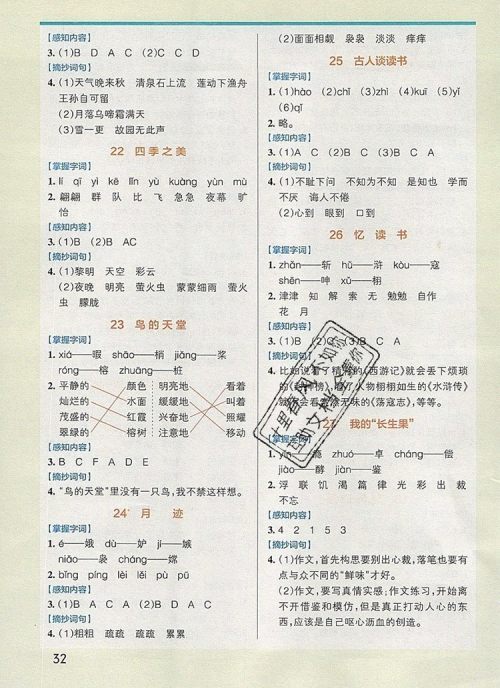 【感知内容】
3. (1)B D A C (2)C C D
【摘抄词句】
4. (1)天气晚来秋 清泉石上流 莲动下渔舟
王孙自可留
(2)月落乌啼霜满天
(3)雪一更 故园无此声
22 四季之美
【掌握字词】
1. lí qī yì kē līn yù kuàng yùn mù
2. 翩翩 群 队 比 飞 急急 夜幕 旷
怡
【感知内容】
3. (1)B (2)B AC
【摘抄词句】
4. (1)黎明 天空 彩云
(2)夜晚 明亮 萤火虫 蒙蒙细雨 萤火
虫 朦胧
23 鸟的天堂
【掌握字词】
1. xiá——暇 shāo——梢 jiāng——桨
róng——榕 zhuāng——桩
2. 平静的 颜色 明亮地 看着
灿烂的 水面 缓缓地 叫着
茂盛的 红霞 兴奋地 照耀
翠绿的 榕树 注意地 移动
【感知内容】
3. B C F A D E
【摘抄词句】
4. “鸟的天堂”里没有一只鸟,我不禁这样想。
24 月 迹
【掌握字词】
1. é——娥 dù——妒 jí——嫉
niǎo——袅 cháng——嫦
2. bǐng píng lèi lěi pù pū
【感知内容】
3. (1)B A C A (2)B D A C
【摘抄词句】
4. (1)粗粗 疏疏 疏疏 累累
32
(2)面面相觑 袅袅 淡淡 痒痒
25 古人谈读书
【掌握字词】
1. (1)hào (2)chǐ (3)zhì (4)kuī (5)yǐ
(6)qǐ
2. 略。
【感知内容】
3. (1)A C (2)B C (3)B C A
【摘抄词句】
4. (1)不耻下问 不知为不知 是知也 学而
不厌 诲人不倦
(2)心到 眼到 口到
26 忆 读 书
【掌握字词】
1. zhǎn——斩 hǔ——浒 kòu——寇
shēn——呻 xǔ——栩
2. 津津 知 解 索 无 勉勉 自作
花 月
【感知内容】
3. (1)B (2)C (3)B C A
【摘抄词句】
4. 比如说看了精彩的《西游记》就会丢下烦琐
的《封神榜》,看了人物栩栩如生的《水浒传》
就不会看索然无味的《荡寇志》,等等。
27 我的“长生果”
【掌握字词】
1. yǐn——瘾 zhuó——卓 cháng——偿
jiào——酵 jiàn——鉴
2. 浮 联 饥 渴 篇 律 光 彩 出 裁
不忘
【感知内容】
3. 4 2 1 5 3
【摘抄词句】
4. (1)作文,首先构思要别出心裁,落笔也要有
点与众不同的“鲜味”才好。
(2)作文,要写真情实感;作文练习,开始离
不开借鉴和模仿,但是真正打动人心的东
西,应该是自己呕心沥血的创造。